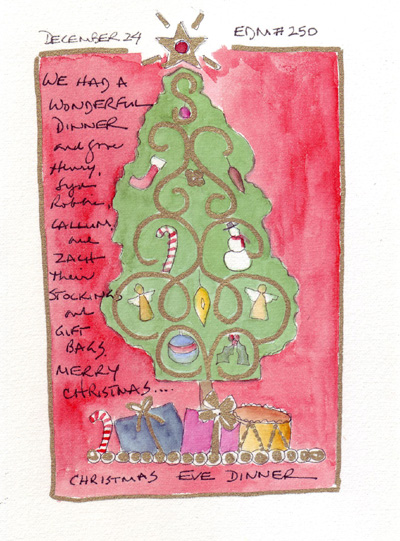 DECEMBER 24
EDM# 250
WE HAD A
WONDERFUL
DINNER
and gave
Henry,
Robbie,
CALLUM,
and
ZACH
their
STOCKINGS
and
GIFT
BAGS.
MERRY
CHRISTMAS....
CHRISTMAS EVE DINNER